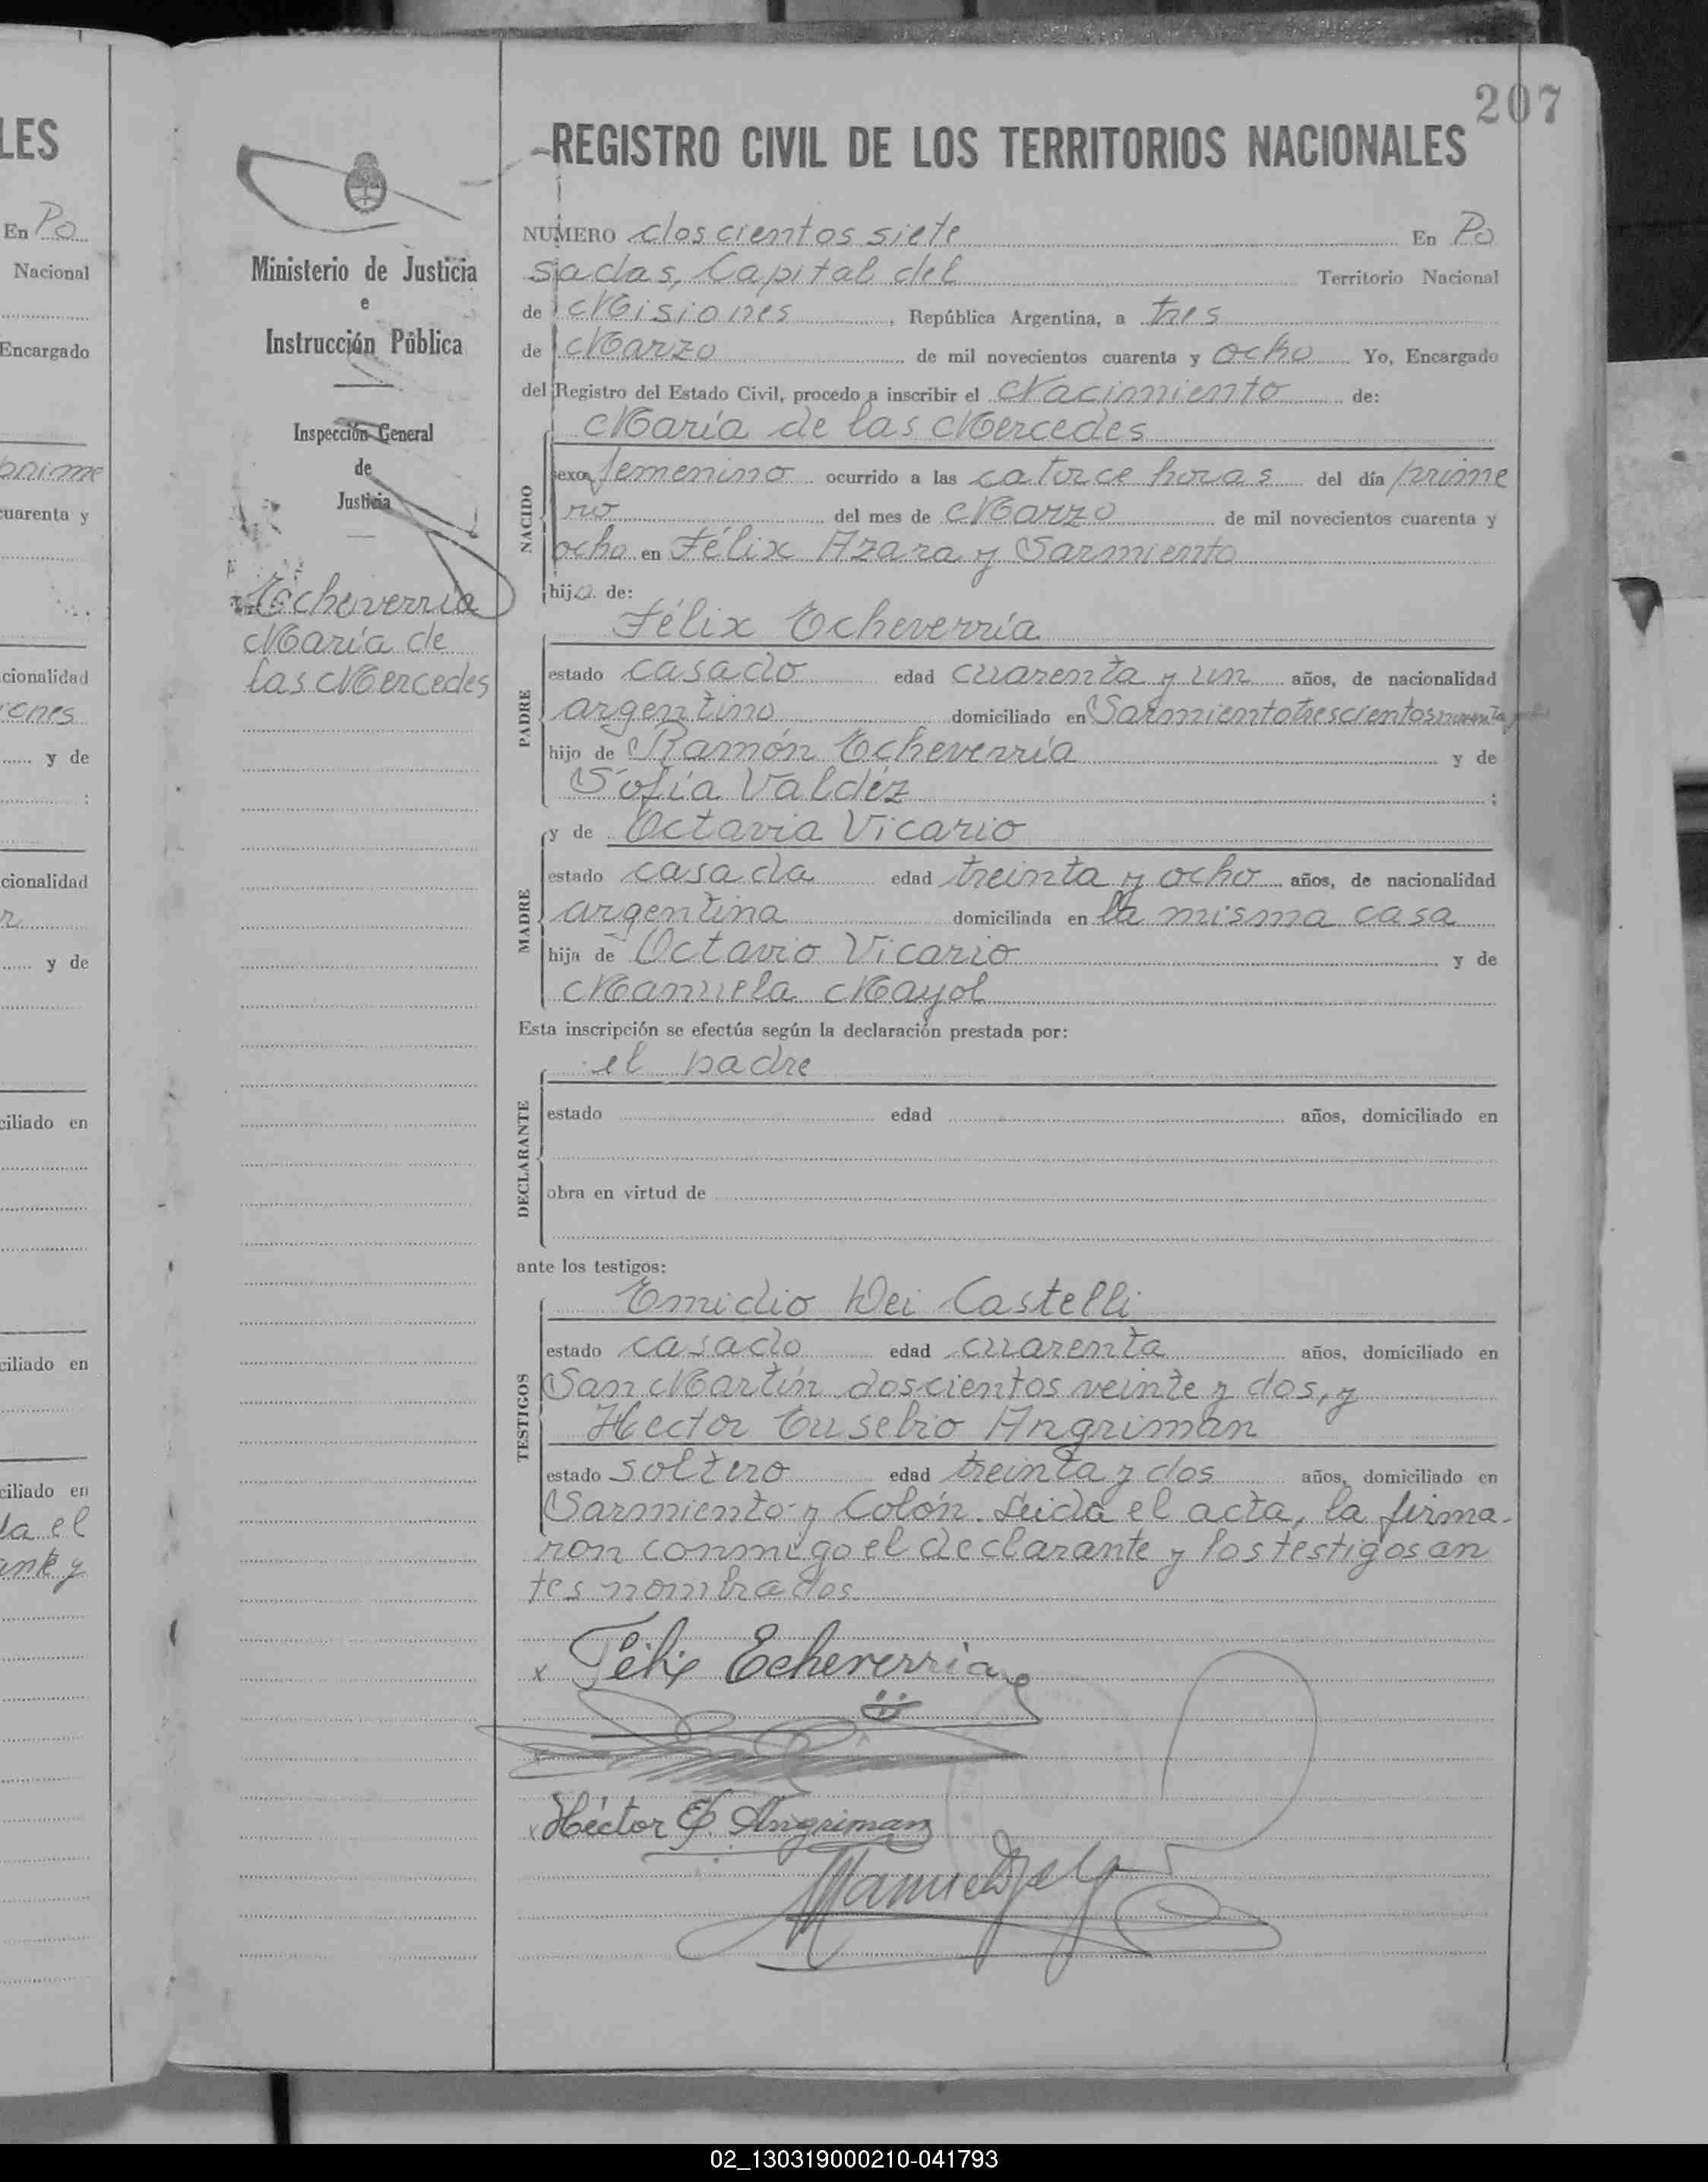 207
LES
En Po
Nacional
Encargado
prime
cuarenta y
cionalidad
iones
y de
;
cionalidad
y de
ciliado en
ciliado en
ciliado en
da el
ante y
Ministerio de Justicia
e
Instrucción Pública
Inspección General
de
Justicia
Echeverria
María de
las Mercedes
REGISTRO CIVIL DE LOS TERRITORIOS NACIONALES
NUMERO doscientos siete En Po
sadas, Capital del Territorio Nacional
de Misiones, República Argentina, a tres
de Marzo de mil novecientos cuarenta y ocho Yo, Encargado
del Registro del Estado Civil, procedo a inscribir el Nacimiento de:
María de las Mercedes
NACIDO
sexo femenino ocurrido a las catorce horas del día prime
ro del mes de Marzo de mil novecientos cuarenta y
ocho en Félix Azara y Sarmiento
hija de:
Félix Echeverría
PADRE
estado casado edad cuarenta y un años, de nacionalidad
argentino domiciliado en Sarmiento trescientos noventa
hijo de Ramón Echeverría y de
Sofía Valdéz ;
y de Octavia Vicario
MADRE
estado casada edad treinta y ocho años, de nacionalidad
argentina domiciliada en la misma casa
hija de Octavio Vicario y de
Manuela Mayol
Esta inscripción se efectúa según la declaración prestada por:
el padre
DECLARANTE
estado edad años, domiciliado en
obra en virtud de
ante los testigos:
Emidio Dei Castelli
TESTIGOS
estado casado edad cuarenta años, domiciliado en
San Martín doscientos veinte y dos, y
Hector Eusebio Angriman
estado soltero edad treinta y dos años, domiciliado en
Sarmiento y Colón. Leida el acta, la firma-
ron conmigo el declarante y los testigos an
tes nombrados
x Félix Echeverria
x Héctor E. Angriman
02_130319000210-041793